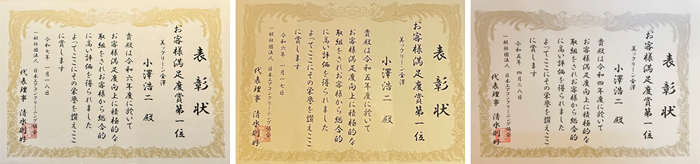 表彰状
お客様満足度賞第一位
美ックリーン金澤
小澤浩二 殿
貴殿は令和六年度に於いて
お客様満足度向上に積極的な
取組をされお客様から総合的
に高い評価を得られました
よってここにその栄誉を讃えここ
に賞します
令和七年 一月一八日
一般社団法人 日本エアコンクリーニング協会
代表理事 清水剛好
表彰状
お客様満足度賞第一位
美ックリーン金澤
小澤浩二 殿
貴殿は令和五年度に於いて
お客様満足度向上に積極的な
取組をされお客様から総合的
に高い評価を得られました
よってここにその栄誉を讃えここ
に賞します
令和六年 一月一七日
一般社団法人 日本エアコンクリーニング協会
代表理事 清水剛好
表彰状
お客様満足度賞第一位
美ックリーン金澤
小澤浩二 殿
貴殿は令和四年度に於いて
お客様満足度向上に積極的な
取組をされお客様から総合的
に高い評価を得られました
よってここにその栄誉を讃えここ
に賞します
令和五年 四月二八日
一般社団法人 日本エアコンクリーニング協会
代表理事 清水剛好